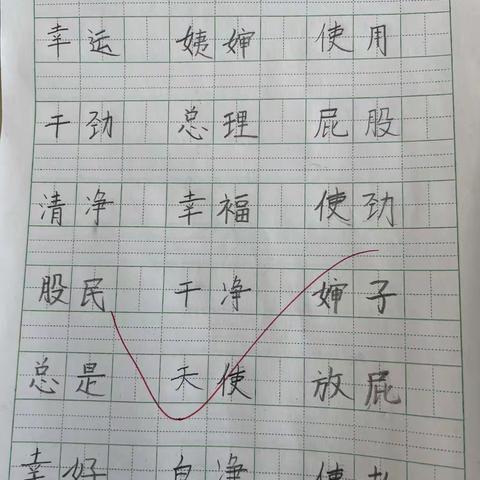 幸运 姨婶 使用
干劲 总理 屁股
清净 幸福 使劲
股民 干净 婶子
总是 天使 放屁
幸好 白净